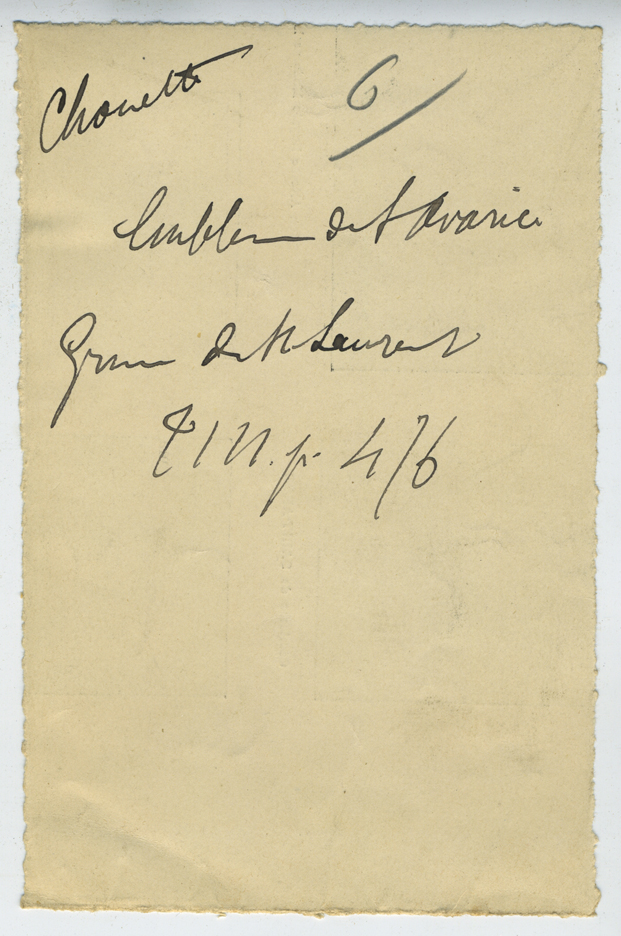 Chouette
6/
Emblem de l'Avarice
Grim de St Laurent
T III. p. 476